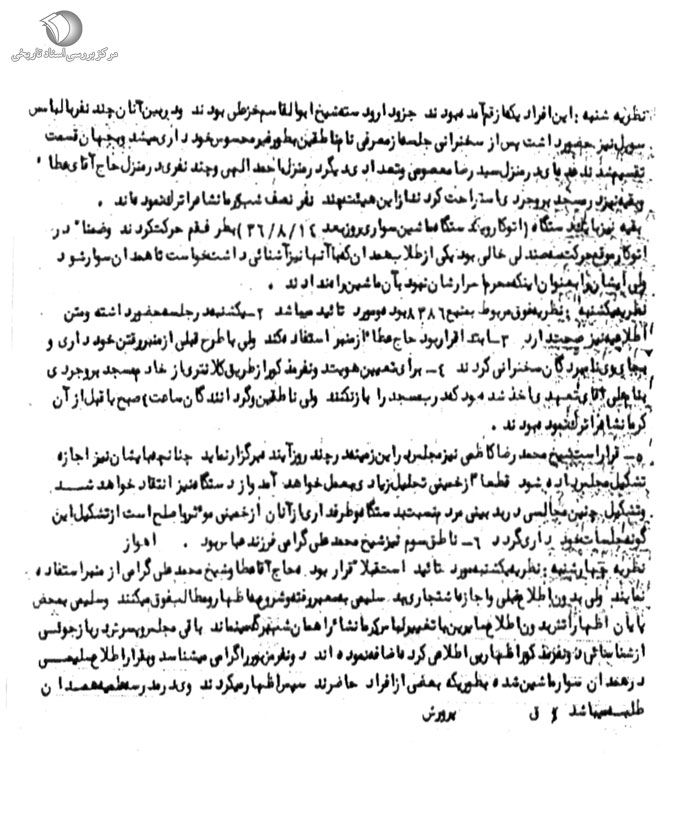 مرکز بررسی اسناد تاریخی
نظریه شنبه : این افراد یکه از قم آمده بودند جزو دار و دسته شیخ ابوالقاسم خزعلی بودند و در بین آنان چند نفر با لباس
سویل نیز حضور داشت پس از سخنرانی جلسه از معرفی نام ناطقین بطور غیر محسوس خود داری میشد و بچهار قسمت
تقسیم شدند عده ای در منزل سید رضا معصومی و تعدادی دیگر در منزل احمد الهی و چند نفری در منزل حاج آقای عطاء
و بقیه نیز در مسجد بروجردی استراحت کردند از این هیئت چند نفر نصف شب کرمانشاه را ترک نموده اند .
بقیه نیز با یکدستگاه اتوکار و یکدستگاه ماشین سواری روز بعد (۳۶/۸/۱۴) بطرف قم حرکت کردند و ضمنا" در
اتوکار موقع حرکت سه صندلی خالی بود یکی از طلاب همدان که با آنها نیز آشنائی داشت خواست تا همدان سوار شود
ولی ایشان را بعنوان اینکه محرم اسرارشان نبود بآن ماشین راه ندادند .
نظریه یکشنبه : نظریه فوق مربوط به منبع ۸۳۸۶ بوده و مورد تائید میباشد ۲- یکشنبه در جلسه حضور داشته و متن
اطلاعیه نیز صحت دارد ۳- ابتدا قرار بود حاج عطاء از منبر استفاده کند ولی با طرح قبلی از منبر رفتن خود داری و
بجای وی نامبردگان سخنرانی کردند ۴- برای تعیین هویت دو نفر مذکور از طریق کلانتری از خادم مسجد بروجردی
بنام علی آقای تعهدی اخذ شده بود که درب مسجد را باز نکند ولی ناطقین و گردانندگان ساعت ۴ صبح یا قبل از آن
کرمانشاه را ترک نموده بودند .
۵- قرار است شیخ محمد رضا کاظمی نیز مجلسی در این زمینه در چند روز آینده برگزار نماید چنانچه بایشان نیز اجازه
تشکیل مجلس داده شود قطعا" از خمینی تجلیل زیادی بعمل خواهد آمد و از دستگاه نیز انتقاد خواهد شد
و تشکیل چنین مجالسی در بد بینی مردم نسبت به دستگاه و طرفداری از آنان از خمینی موثر و اصلح است از تشکیل این
گونه جلسات خود داری گردد ۶- ناطق سوم نیز شیخ محمد علی گرامی فرزند عباس بود . اهواز
نظریه چهارشنبه : نظریه یکشنبه مورد تائید است قبلا" قرار بوده حاج آقا عطا و شیخ محمد علی گرامی از منبر استفاده
نمایند ولی بدون اطلاع قبلی و اجازه شتجاری بد سلیمی به منبر رفته و شروع به اظهار و مطالب فوق میکنند و سلیمی بمحض
پایان اظهاراتش بدون اطلاع سایرین با تغییر لباس کرمانشاه را همان شب ترک مینماید باقی مجلس و سر تردید باز جوئی
از شناسائی دو نفر مذکور اظهار بی اطلاعی کرده اضافه نموده اند دو نفر مزبور را گرامی میشناسد و بقرار اطلاع سلیمی
در همدان سوار ماشین شده بطوریکه بعضی از افراد حاضرند سپس اظهار میکردند وی در مدرسه علمیه همدان
طلبه میباشد ق پرورش